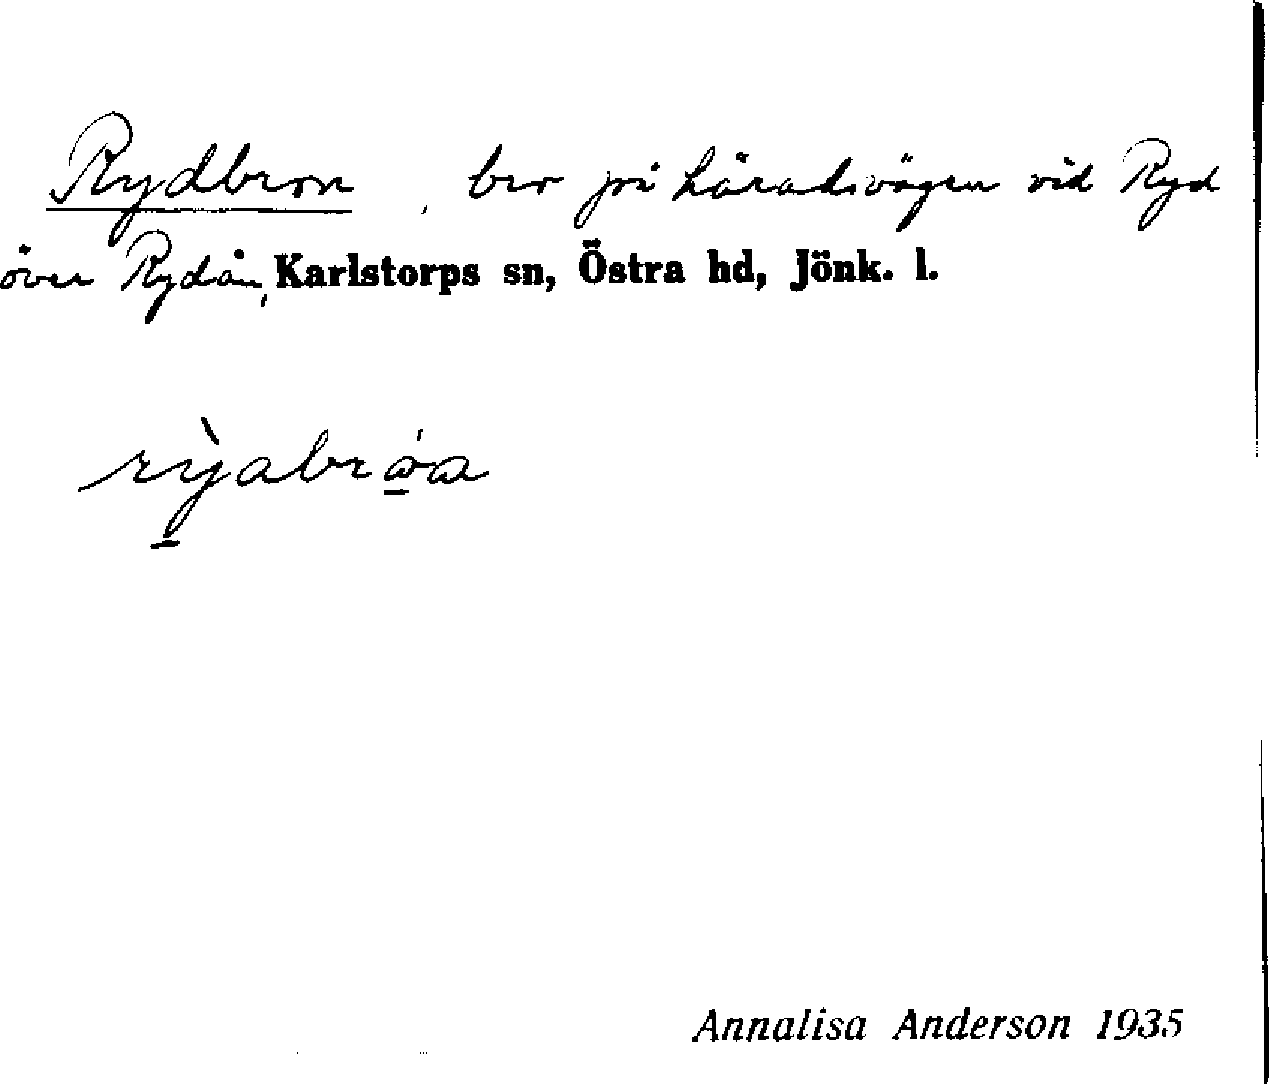 Rydbron, bro på häradsvägen vid Ryd
över Rydån, Karlstorps sn, Östra hd, Jönk. l.
Annalisa Anderson 1935